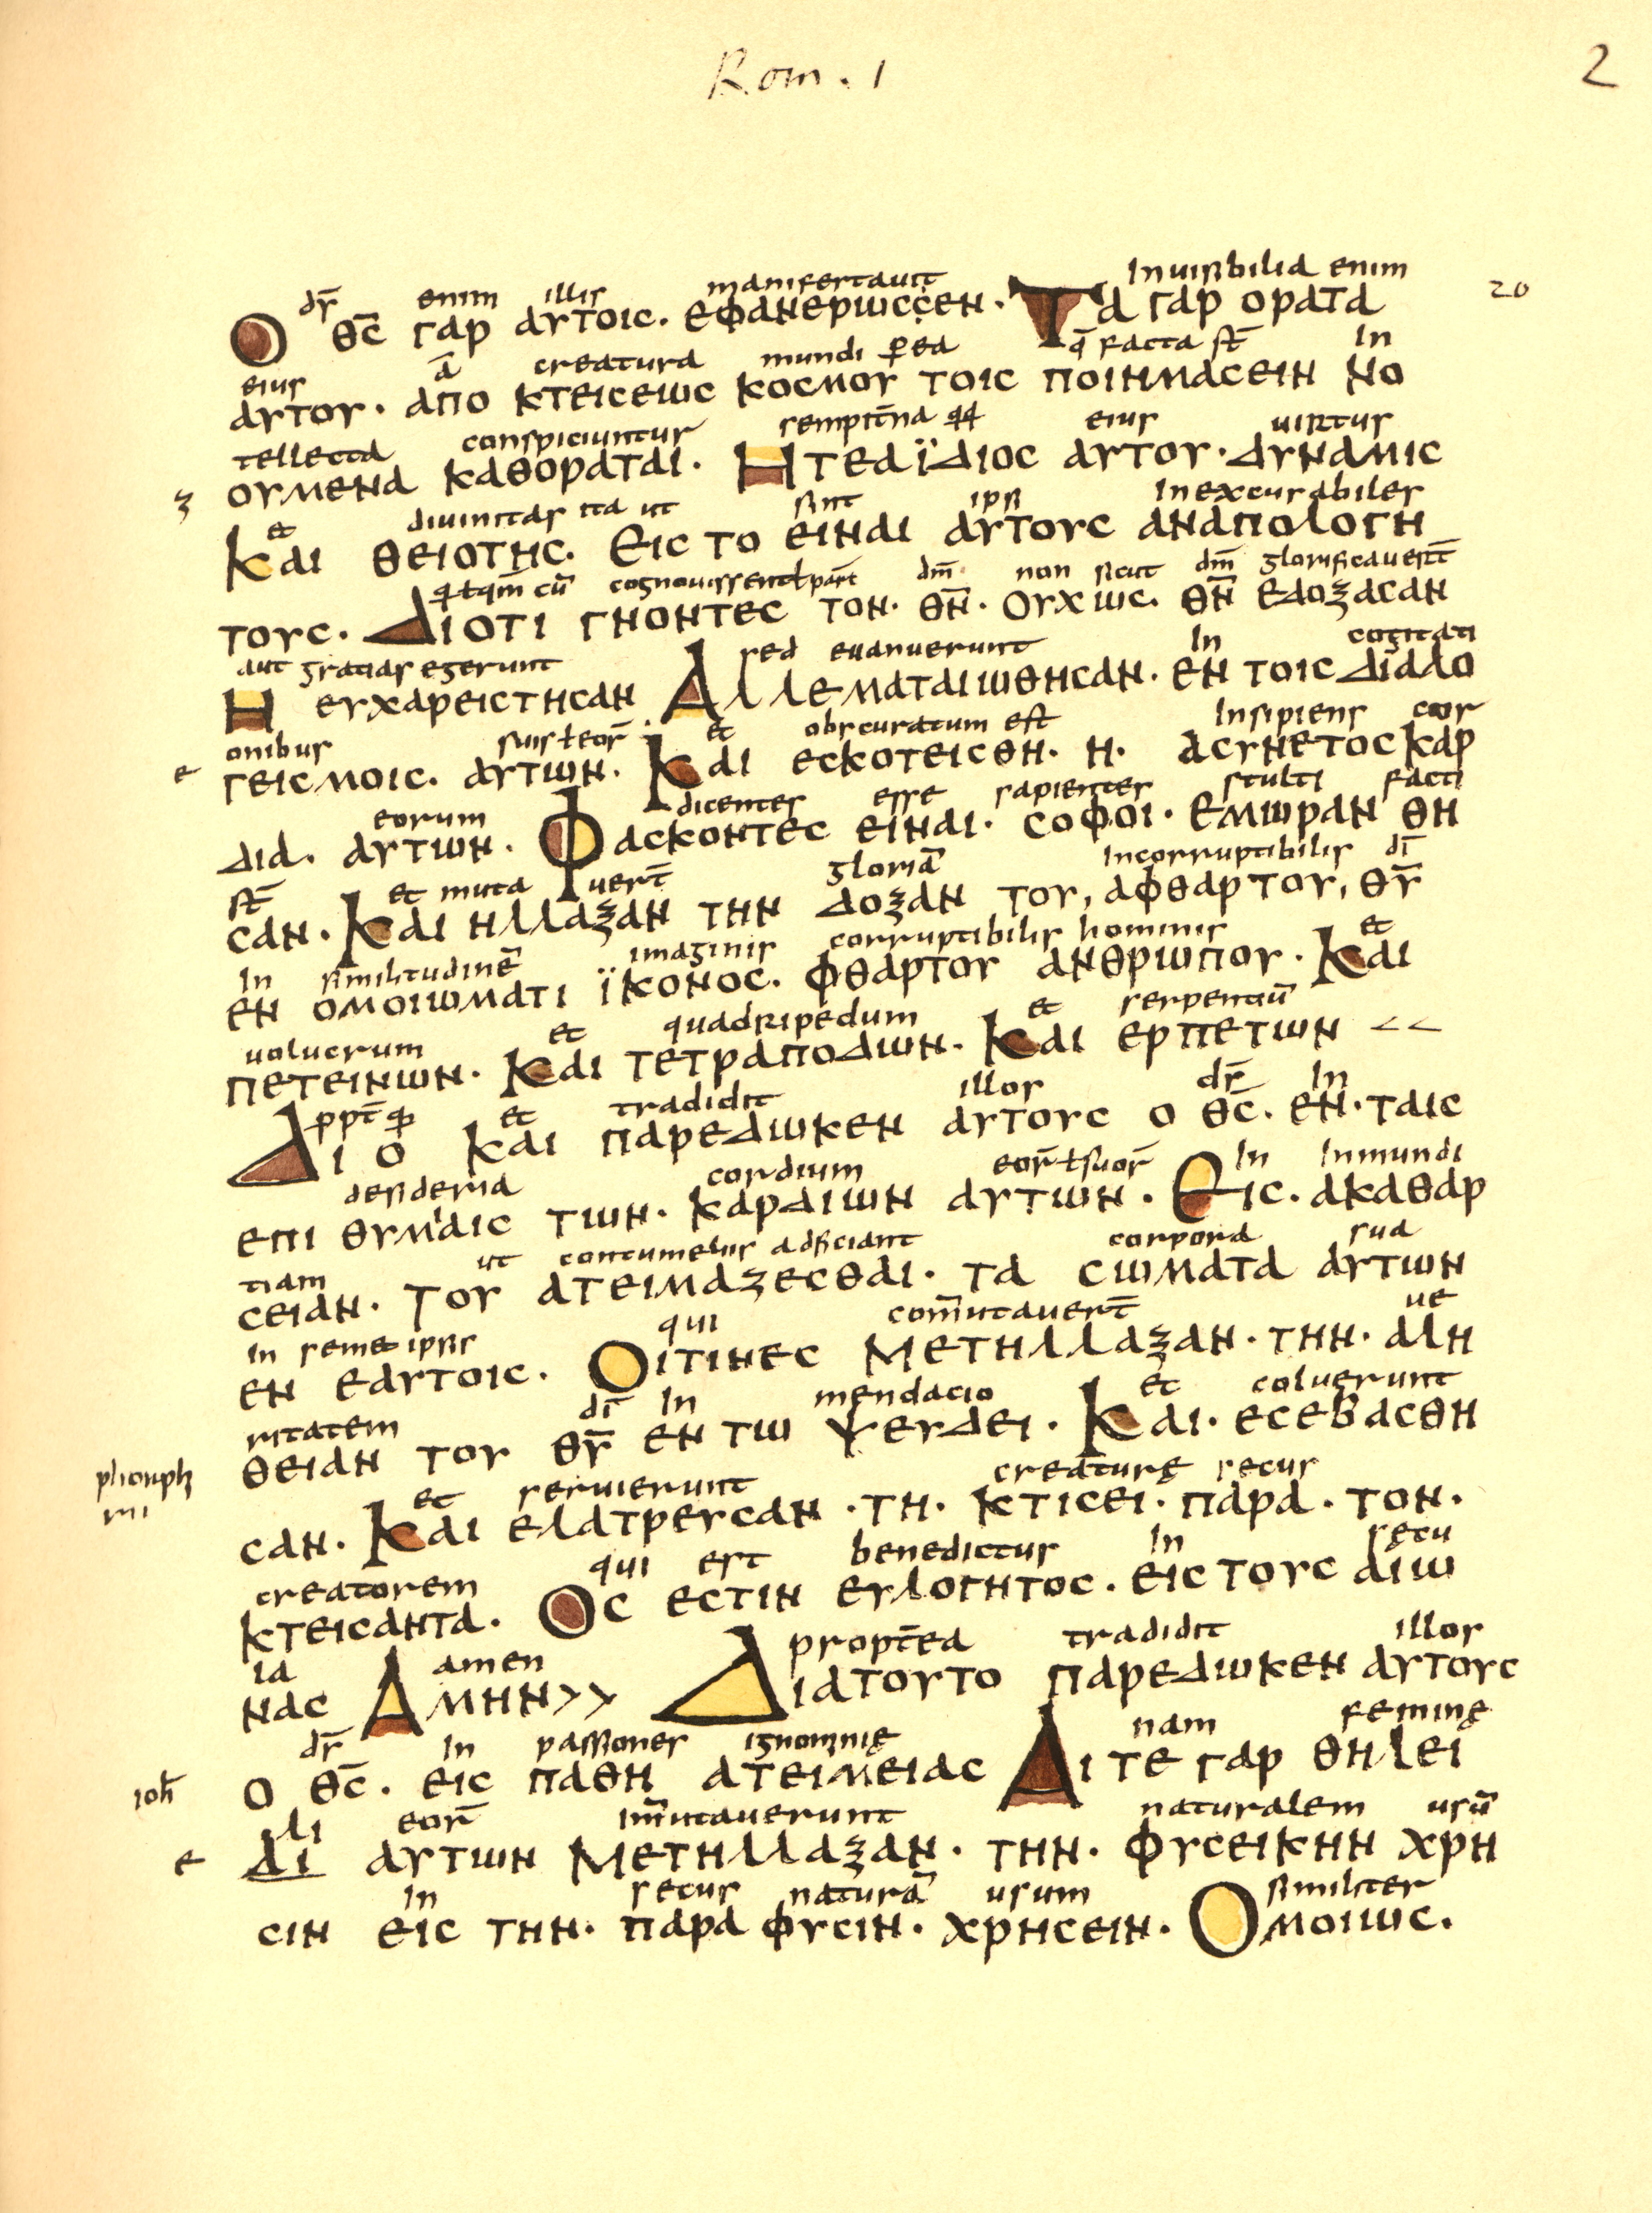 Rom. 1
2
dr̄ enim illis manifestauit Inuisibilia enim
Ο ΘC̄ ΓΑΡ ΑΥΤΟΙC· ΕΦΑΝΕΡΙΩCCΕΝ· ΤΑ ΓΑΡ ΟΡΑΤΑ
20
eius ā creatura mundi p̄ ea q̄ facta st̄ In
ΑΥΤΟΥ· ΑΠΟ ΚΤΕΙCΕΩC ΚΟCΜΟΥ ΤΟΙC ΠΟΙΗΜΑCΕΙΝ ΝΟ
tellecta conspiciuntur sempit̄na eius uirtus
ΟΥΜΕΝΑ ΚΑΘΟΡΑΤΑΙ· ΗΤΕΑΪΔΙΟC ΑΥΤΟΥ· ΔΥΝΑΜΙC
et diuinitas ita ut sint ipsi Inexcusabiles
ΚΑΙ ΘΕΙΟΤΗC· ΕΙC ΤΟ ΕΙΝΑΙ ΑΥΤΟΥC ΑΝΑΠΟΛΟΓΗ
cū cognouissent dm̄ non sicut dm̄ glorificauer̄t
ΤΟΥC· ΔΙΟΤΙ ΓΝΟΝΤΕC ΤΟΝ· ΘΝ̄· ΟΥΧ ΩC· ΘΝ̄ ΕΔΟΞΑCΑΝ
aut gratias egerunt sed euanuerunt In cogitati
Η ΕΥΧΑΡΕΙCΤΗCΑΝ ΑΛΛΕΜΑΤΑΙΩΘΗCΑΝ· ΕΝ ΤΟΙC ΔΙΑΛΟ
onibus suis ł eor̄ et obscuratum est Insipiens cor
ΓΕΙCΜΟΙC· ΑΥΤΩΝ· ΚΑΙ ΕCΚΟΤΕΙCΘΗ· Η· ΑCΥΝΕΤΟC ΚΑΡ
eorum dicentes esse sapientes stulti facti
ΔΙΑ· ΑΥΤΩΝ· ΦΑCΚΟΝΤΕC ΕΙΝΑΙ· CΟΦΟΙ· ΕΜΩΡΑΝ ΘΗ
st̄ et muta uer̄t gloriā Incorruptibilis dī
CΑΝ· ΚΑΙ ΗΛΛΑΞΑΝ ΤΗΝ ΔΟΞΑΝ ΤΟΥ, ΑΦΘΑΡΤΟΥ, ΘῩ
In similitudinē imaginis corruptibilis hominis et
ΕΝ ΟΜΟΙΩΜΑΤΙ ΪΚΟΝΟC· ΦΘΑΡΤΟΥ ΑΝΘΡΙΩΠΟΥ· ΚΑΙ
uolucrum et quadripedum et serpentiū
ΠΕΤΕΙΝΩΝ· ΚΑΙ ΤΕΤΡΑΠΟΔΩΝ· ΚΑΙ ΕΡΠΕΤΩΝ <<
et tradidit illos dr̄ In
ΔΙ Ο ΚΑΙ ΠΑΡΕΔΩΚΕΝ ΑΥΤΟΥC Ο ΘC̄· ΕΝ· ΤΑΙC
desideria cordium eor̄ ł suor̄ In Inmundi
ΕΠΙ ΘΥΜΑΙC ΤΩΝ· ΚΑΡΔΙΩΝ ΑΥΤΩΝ· ΕΙC· ΑΚΑΘΑΡ
tiam ut contumeliis adficiant corpora sua
CΕΙΑΝ· ΤΟΥ ΑΤΕΙΜΑΖΕCΘΑΙ· ΤΑ CΩΜΑΤΑ ΑΥΤΩΝ
In semet ipsis qui com̄utauer̄t ue
ΕΝ ΕΑΥΤΟΙC· ΟΙΤΙΝΕC ΜΕΤΗΛΛΑΞΑΝ· ΤΗΝ· ΑΛΗ
ritatem dī In mendacio et coluerunt
ΘΕΙΑΝ ΤΟΥ ΘῩ ΕΝ ΤΩ ΨΕΥΔΕΙ· ΚΑΙ· ΕCΕΒΑCΘΗ
et seruierunt creature secus
CΑΝ· ΚΑΙ ΕΛΑΤΡΕΥCΑΝ ·ΤΗ· ΚΤΙCΕΙ· ΠΑΡΑ· ΤΟΝ·
creatorem qui est benedictus In secu
ΚΤΕΙCΑΝΤΑ· ΟC ΕCΤΙΝ ΕΥΛΟΓΗΤΟC· ΕΙC ΤΟΥC ΑΙΩ
la amen propt̄ea tradidit illos
ΝΑC ΑΜΗΝ>> ΔΙΑΤΟΥΤΟ ΠΑΡΕΔΩΚΕΝ ΑΥΤΟΥC
dr̄ In passiones ignominie nam femine
ioh̄ Ο ΘC̄· ΕΙC ΠΑΘΗ ΑΤΕΙΜΕΙΑC ΑΙ ΤΕ ΓΑΡ ΘΗΛΕΙ
eor̄ Im̄utauerunt naturalem usū
ΑΙ ΑΥΤΩΝ ΜΕΤΗΛΛΑΞΑΝ· ΤΗΝ· ΦΥCΕΙΚΗΝ ΧΡΗ
In secus naturā usum similiter
CΙΝ ΕΙC ΤΗΝ· ΠΑΡΑ ΦΥCΙΝ· ΧΡΗCΕΙΝ· ΟΜΟΙΩC·